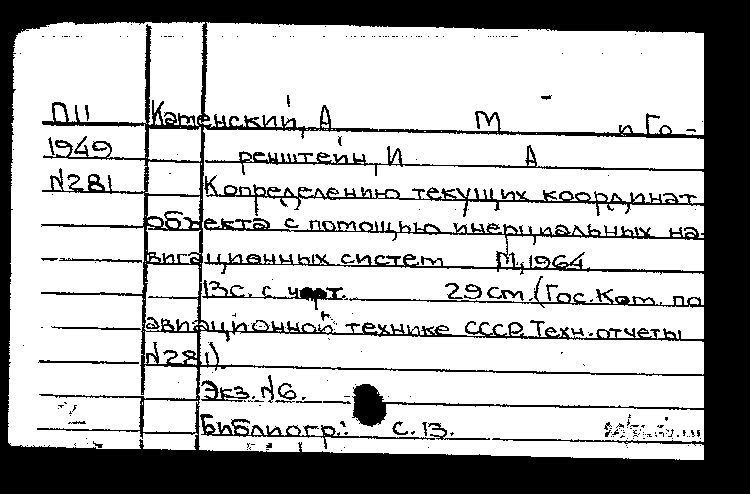 П11 Каменский, А М и Го-
1949 ренштейн, И А
N281 К определению текущих координат
объекта с помощью инерциальных на-
вигационных систем М, 1964.
13с. с черт. 29 см. (Гос. Ком. по
авиационной технике СССР. Техн. отчеты
N281).
Экз. N6.
Библиогр.: с. 13.